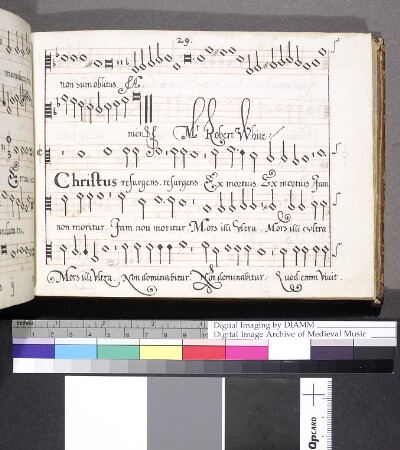 29.
non sum oblitus &c.
men
Mr Robert White
Christus resurgens. resurgens Ex mortuis Ex mortuis Iam
non moritur. Iam non moritur. Mors illi vltra. Mors illi vltra
Mors illi vltra. Non dominabitur. Non dominabitur. Quod enim viuit.
Digital Imaging by DIAMM
Digital Image Archive of Medieval Music
inches 1 2 3
QPCARD